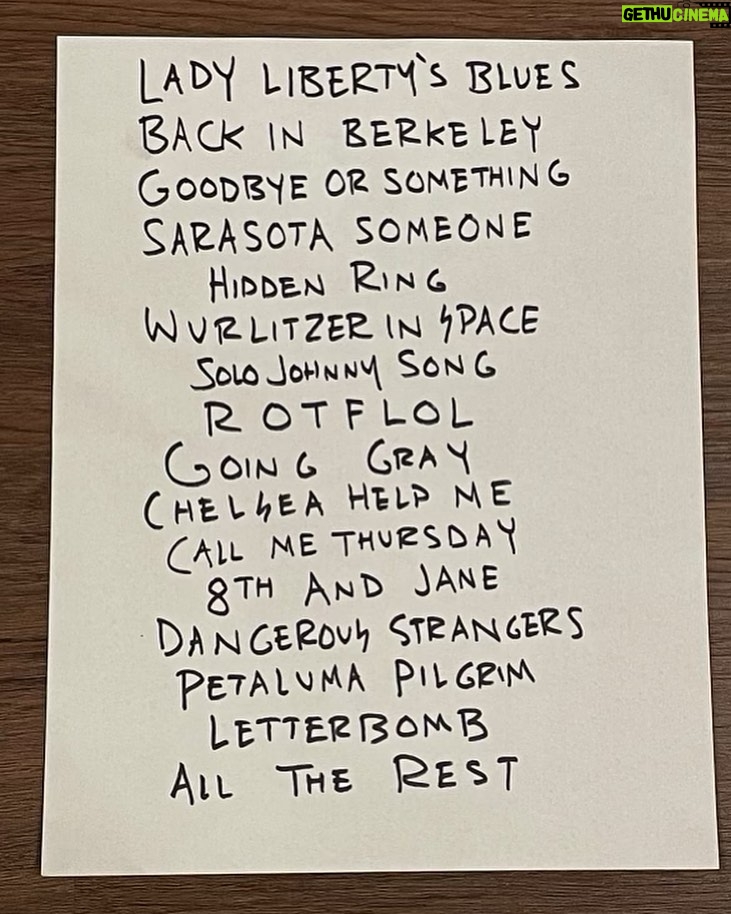 GETHUCINEMA
LADY LIBERTY'S BLUES
BACK IN BERKELEY
GOODBYE OR SOMETHING
SARASOTA SOMEONE
HIDDEN RING
WURLITZER IN SPACE
SOLO JOHNNY SONG
ROTFLOL
GOING GRAY
CHELSEA HELP ME
CALL ME THURSDAY
8TH AND JANE
DANGEROUS STRANGERS
PETALUMA PILGRIM
LETTERBOMB
ALL THE REST